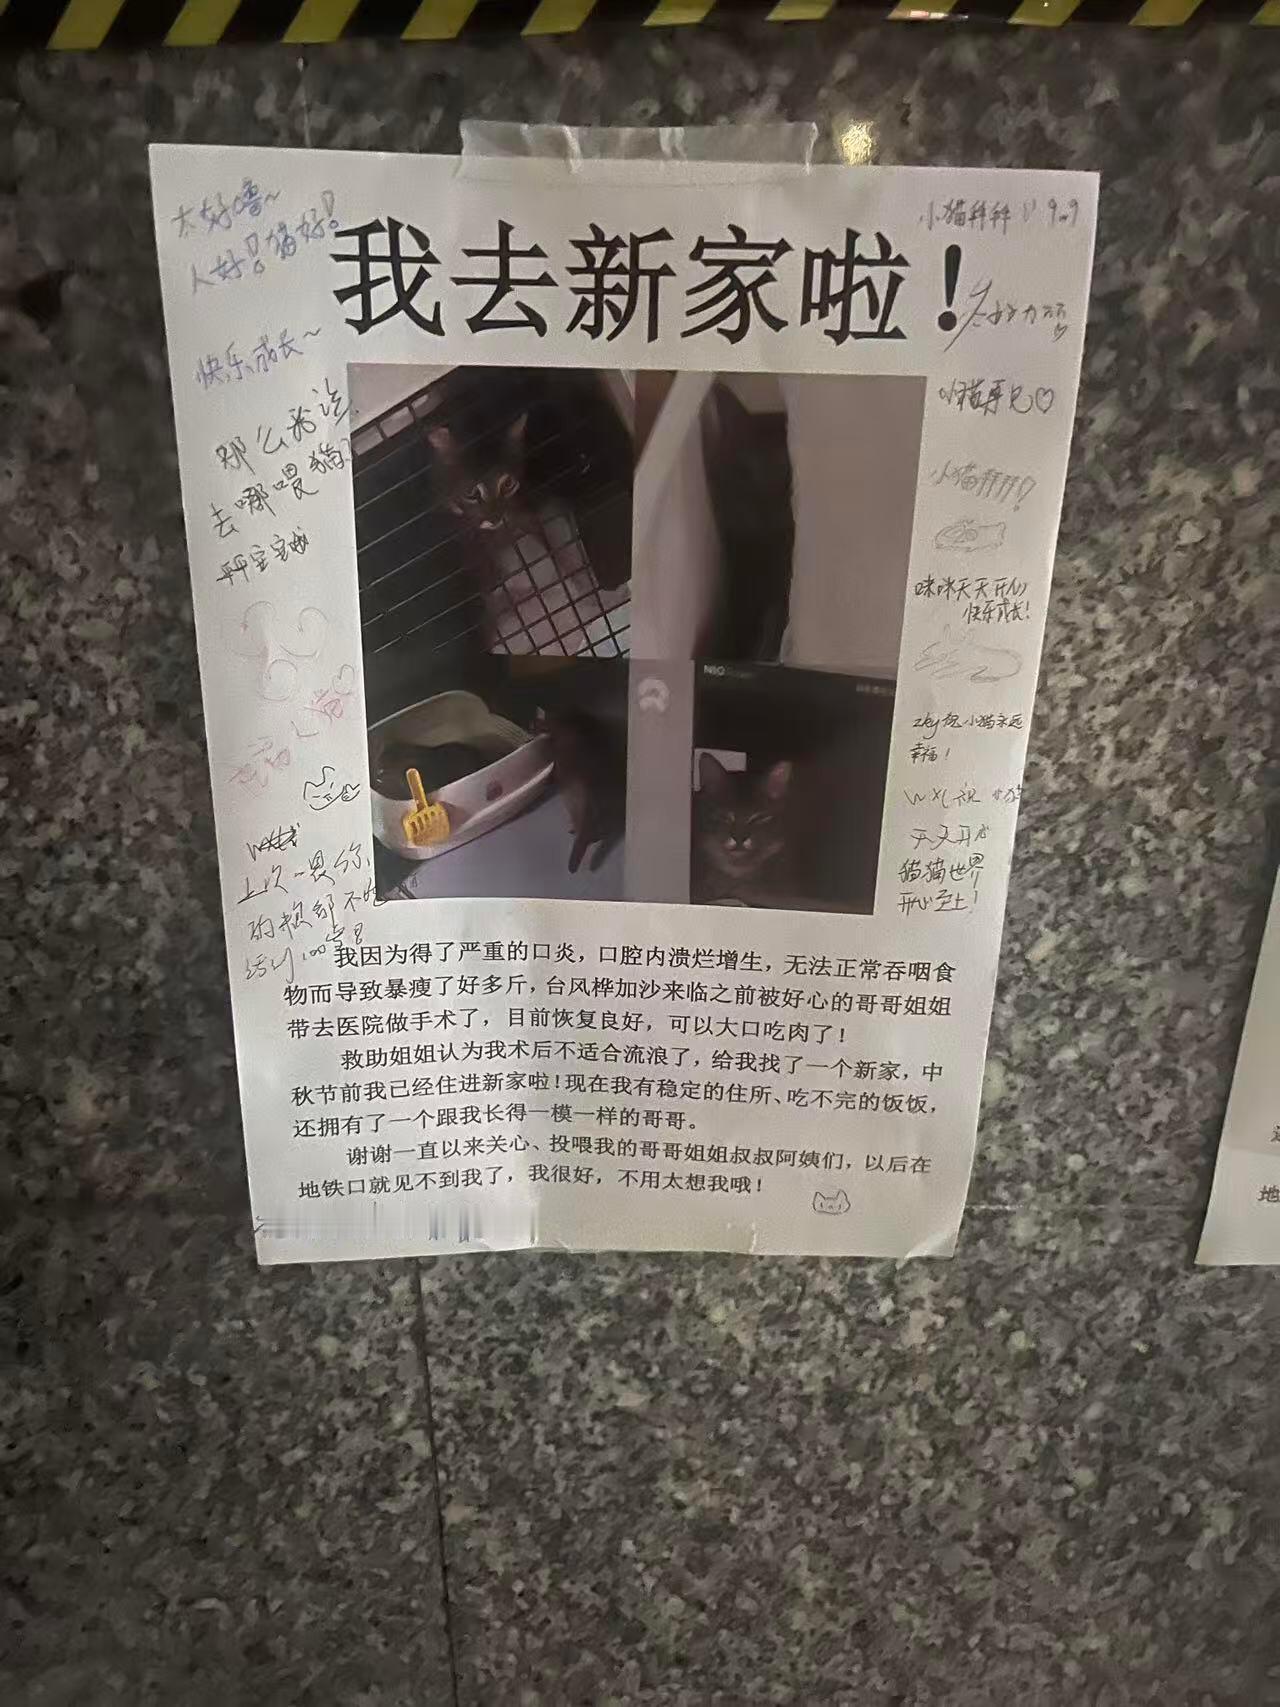 太好噜~
人好！猫好！
快乐成长~
那么我该
去哪喂猫？
小猫拜拜
9.9
我去新家啦！
小猫再见♡
小猫拜拜！
咪咪天天开心
快乐成长！
zky祝小猫永远
幸福！
WXL祝小猫
天天开心
猫猫世界
开心至上！
NIO
上次喂你
的粮都不吃
我因为得了严重的口炎，口腔内溃烂增生，无法正常吞咽食
物而导致暴瘦了好多斤，台风桦加沙来临之前被好心的哥哥姐姐
带去医院做手术了，目前恢复良好，可以大口吃肉了！
救助姐姐认为我术后不适合流浪了，给我找了一个新家，中
秋节前我已经住进新家啦！现在我有稳定的住所、吃不完的饭饭，
还拥有了一个跟我长得一模一样的哥哥。
谢谢一直以来关心、投喂我的哥哥姐姐叔叔阿姨们，以后在
地铁口就见不到我了，我很好，不用太想我哦！